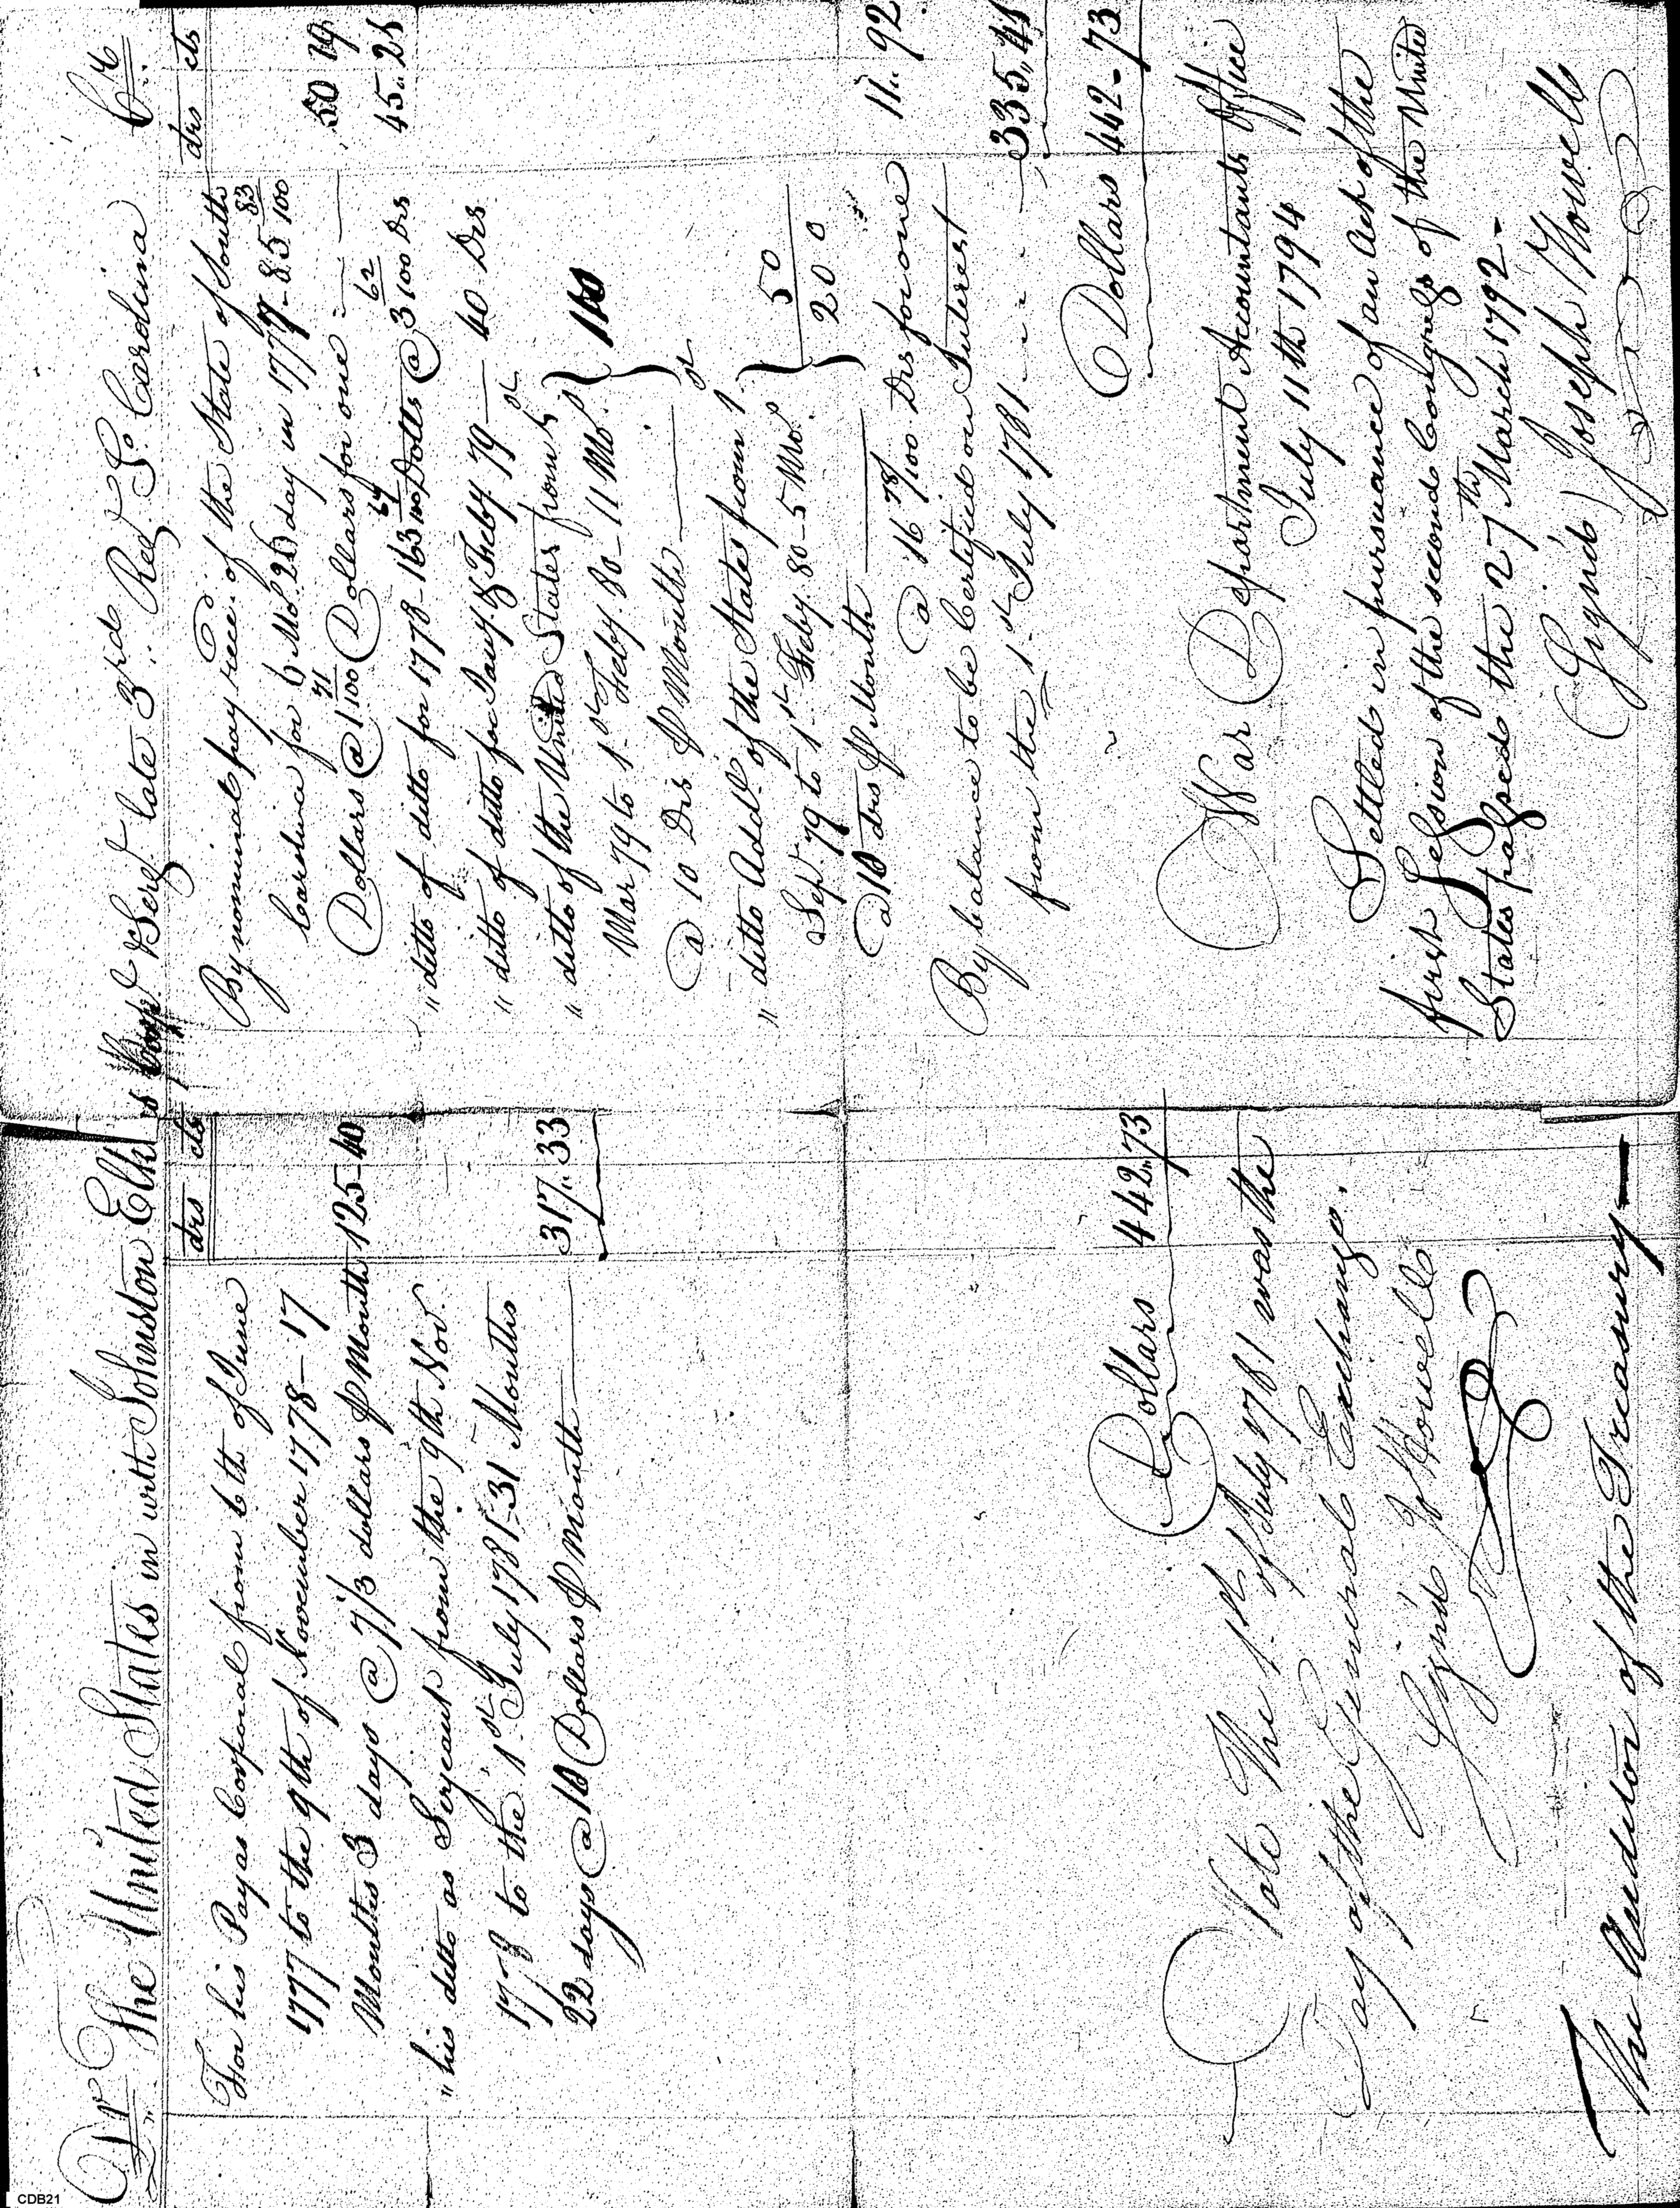 Dr. The United States in with Johnston Elkins Serjt. late 3rd Regt. So. Carolina Cr.
drs cts
For his Pay as Corporal from 6th of June
1777 to the 9th of November 1778 - 17
Months 3 days @ 7 1/3 dollars P Month 125-40
" his ditto as Serjeant from the 9th Nov.
1778 to the 1st July 1781 - 31 Months
22 days @ 10 Dollars P Month 317..33
Dollars 442"73
Note The 1st of July 1781 was the
Day of the General Exchange.
Signd J Howell
The Auditor of the Treasury
drs cts
By nominal pay recd. of the State of South
Carolina for 6 Mo. 20 day in 1777 - 85 83/100
Dollars @ 1 71/100 Dollars for one 50 19
" ditto of ditto for 1778 - 163 64/100 Dolls @ 3 62/100 Drs 45..25
" ditto of ditto for Jany. & Feby. 79 — 40 Drs
" ditto of the United States from 1st
Mar 79 to 1st Feby. 80 - 11 Mo.
@ 10 Drs P Month 110
" ditto Addl. of the States from 1st
Sepr. 79 to 1st Feby. 80 - 5 Mo.
@ 10 drs P Month 50
200
@ 16 78/100 Drs for one 11..92
By balance to be Certified on Interest
from the 1st July 1781 335"41
Dollars 442-73
War Department Accountants Office
July 11th 1794
Settled in pursuance of an Act of the
first Session of the second Congress of the United
States passed the 27th March 1792 -
(Signd) Joseph Howell
CDB21